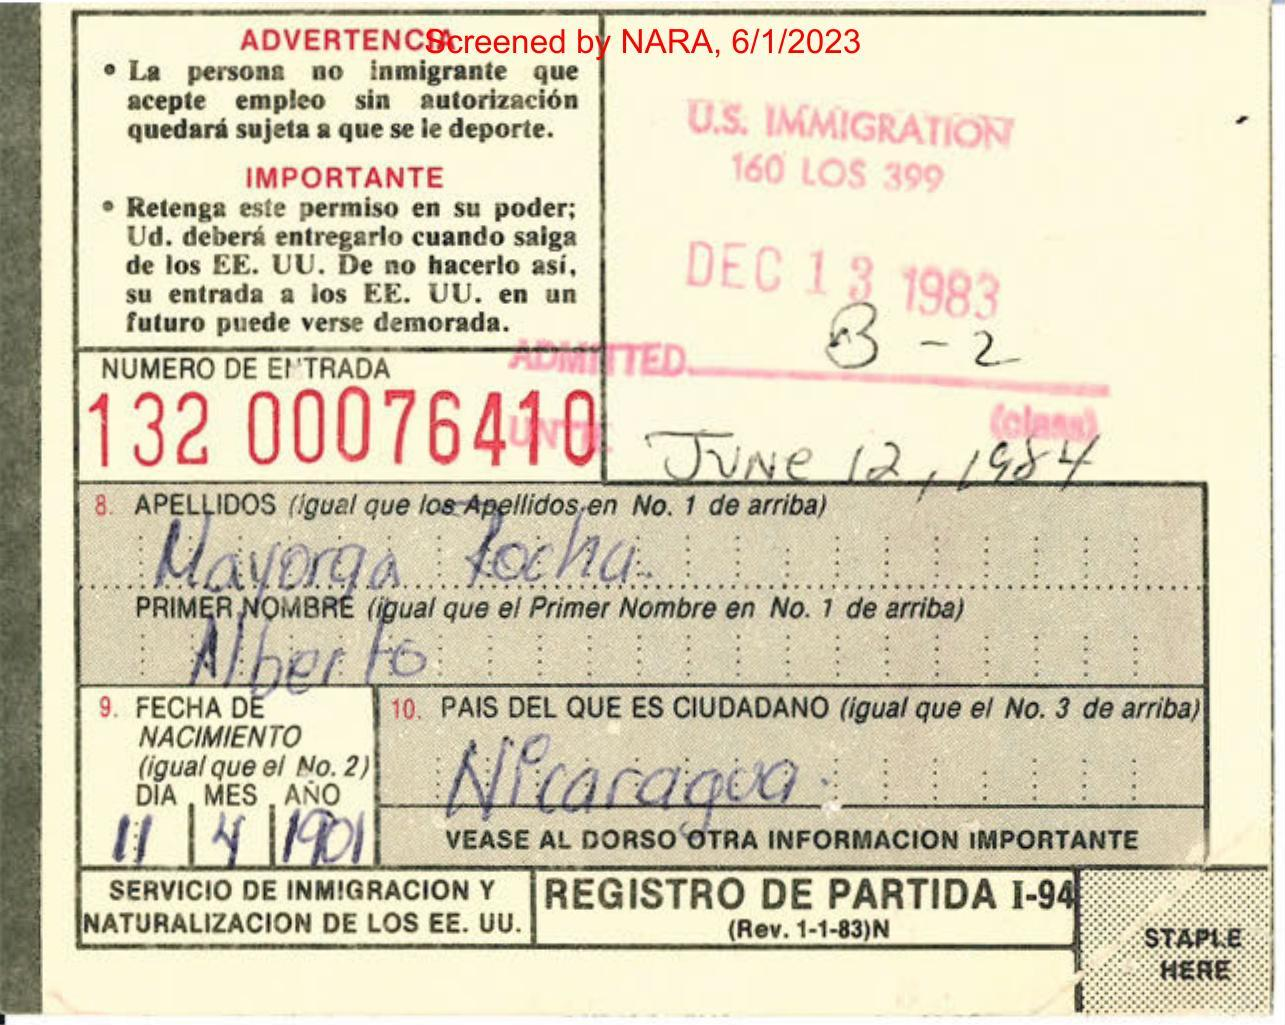 Screened by NARA, 6/1/2023
ADVERTENCIA
• La persona no inmigrante que
acepte empleo sin autorización
quedará sujeta a que se le deporte.
IMPORTANTE
• Retenga este permiso en su poder;
Ud. deberá entregarlo cuando salga
de los EE. UU. De no hacerlo así,
su entrada a los EE. UU. en un
futuro puede verse demorada.
U.S. IMMIGRATION
160 LOS 399
DEC 13 1983
B-2
ADMITTED
(class)
UNTIL
June 12, 1984
NUMERO DE ENTRADA
132 00076410
8. APELLIDOS (igual que los Apellidos en No. 1 de arriba)
Mayorga Rocha.
PRIMER NOMBRE (igual que el Primer Nombre en No. 1 de arriba)
Alberto
9. FECHA DE
NACIMIENTO
(igual que el No. 2)
DIA MES AÑO
11 4 1901
10. PAIS DEL QUE ES CIUDADANO (igual que el No. 3 de arriba)
Nicaragua.
VEASE AL DORSO OTRA INFORMACION IMPORTANTE
SERVICIO DE INMIGRACION Y
NATURALIZACION DE LOS EE. UU.
REGISTRO DE PARTIDA I-94
(Rev. 1-1-83)N
STAPLE
HERE